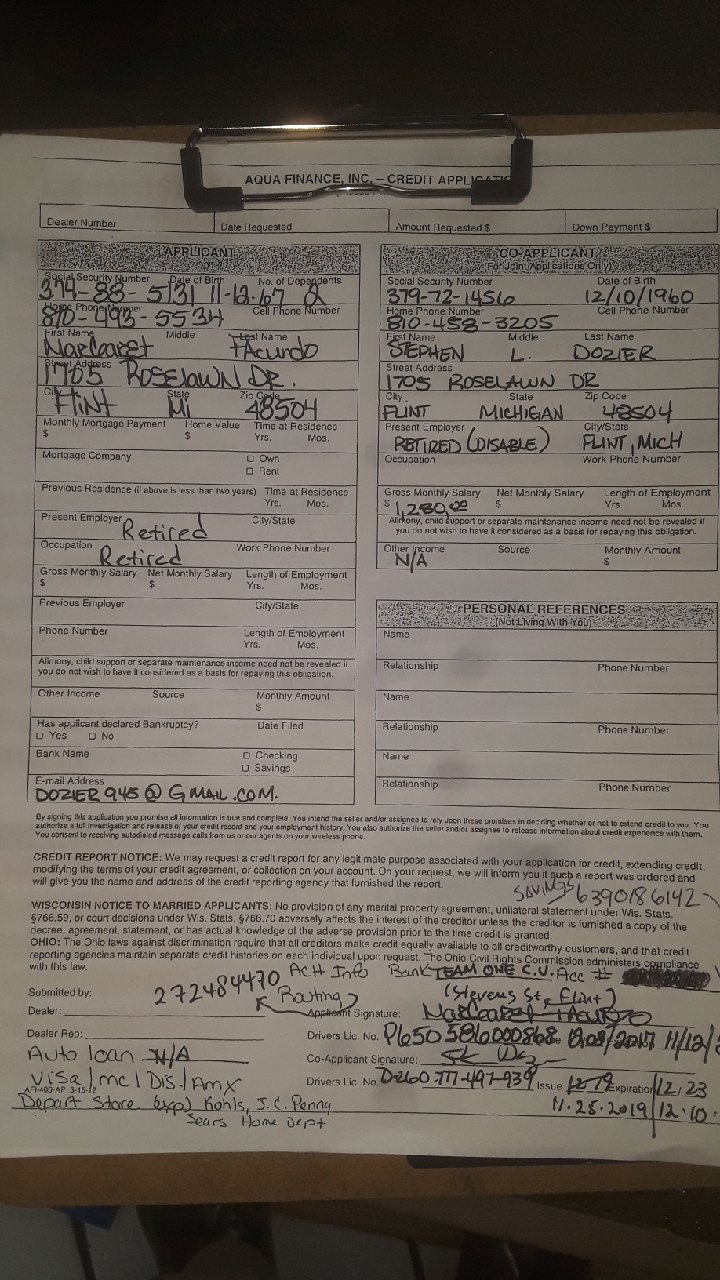 AQUA FINANCE, INC. – CREDIT APPLICATION
Dealer Number Date Requested Amount Requested $ Down Payment $
APPLICANT
Social Security Number Date of Birth No. of Dependents
379-88-5131 11-12-67 2
Home Phone Number Cell Phone Number
810-493-5534
First Name Middle Last Name
Margaret FAcundo
Street Address
1705 ROSELAWN DR.
City State Zip Code
Flint Mi 48504
Monthly Mortgage Payment Home Value Time at Residence
$ $ Yrs. Mos.
Mortgage Company □ Own
□ Rent
Previous Residence (if above is less than two years) Time at Residence
Yrs. Mos.
Present Employer City/State
Retired
Occupation Work Phone Number
Retired
Gross Monthly Salary Net Monthly Salary Length of Employment
$ $ Yrs. Mos.
Previous Employer City/State
Phone Number Length of Employment
Yrs. Mos.
Alimony, child support or separate maintenance income need not be revealed if
you do not wish to have it considered as a basis for repaying this obligation.
Other Income Source Monthly Amount
$
Has applicant declared Bankruptcy? Date Filed
□ Yes □ No
Bank Name □ Checking
□ Savings
E-mail Address
DOZIER945@GMAIL.COM.
CO-APPLICANT
(For Joint Applications Only)
Social Security Number Date of Birth
379-72-1456 12/10/1960
Home Phone Number Cell Phone Number
810-458-3205
First Name Middle Last Name
STEPHEN L. DOZIER
Street Address
1705 ROSELAWN DR
City State Zip Code
FLINT MICHIGAN 48504
Present Employer City/State
RETIRED (DISABLE) FLINT, MICH
Occupation Work Phone Number
Gross Monthly Salary Net Monthly Salary Length of Employment
$ 1,280.00 $ Yrs Mos
Alimony, child support or separate maintenance income need not be revealed if
you do not wish to have it considered as a basis for repaying this obligation.
Other Income Source Monthly Amount
N/A $
PERSONAL REFERENCES
(Not Living With You)
Name
Relationship Phone Number
Name
Relationship Phone Number
Name
Relationship Phone Number
By signing this application you promise all information is true and complete. You intend the seller and/or assignee to rely upon these promises in deciding whether or not to extend credit to you. You
authorize a full investigation and release of your credit record and your employment history. You also authorize the seller and/or assignee to release information about credit experience with them.
You consent to receiving autodialed message calls from us or our agents on your wireless phone.
CREDIT REPORT NOTICE: We may request a credit report for any legitimate purpose associated with your application for credit, extending credit,
modifying the terms of your credit agreement, or collection on your account. On your request, we will inform you if such a report was ordered and
will give you the name and address of the credit reporting agency that furnished the report.
SAVINGS 6390186142
WISCONSIN NOTICE TO MARRIED APPLICANTS: No provision of any marital property agreement, unilateral statement under Wis. Stats.
§766.59, or court decisions under Wis. Stats. §766.70 adversely affects the interest of the creditor unless the creditor is furnished a copy of the
decree, agreement, statement, or has actual knowledge of the adverse provision prior to the time credit is granted.
OHIO: The Ohio laws against discrimination require that all creditors make credit equally available to all creditworthy customers, and that credit
reporting agencies maintain separate credit histories on each individual upon request. The Ohio Civil Rights Commission administers compliance
with this law.
ACH Info Bank TEAM ONE C.U. Acc #
272484470 (Routing) (Stevens St, Flint)
Submitted by:
Dealer: Applicant Signature: Margaret FAcundo
Dealer Rep: Drivers Lic. No.
Auto loan N/A Co-Applicant Signature:
Visa/mc/Dis./Amx Drivers Lic. No. Issue Expiration 12,23
AFI-400-AP 3-15-12
11.25.2019 12.10.
Depart Store (exp) Kohls, J.C. Penny
Sears Home Dept